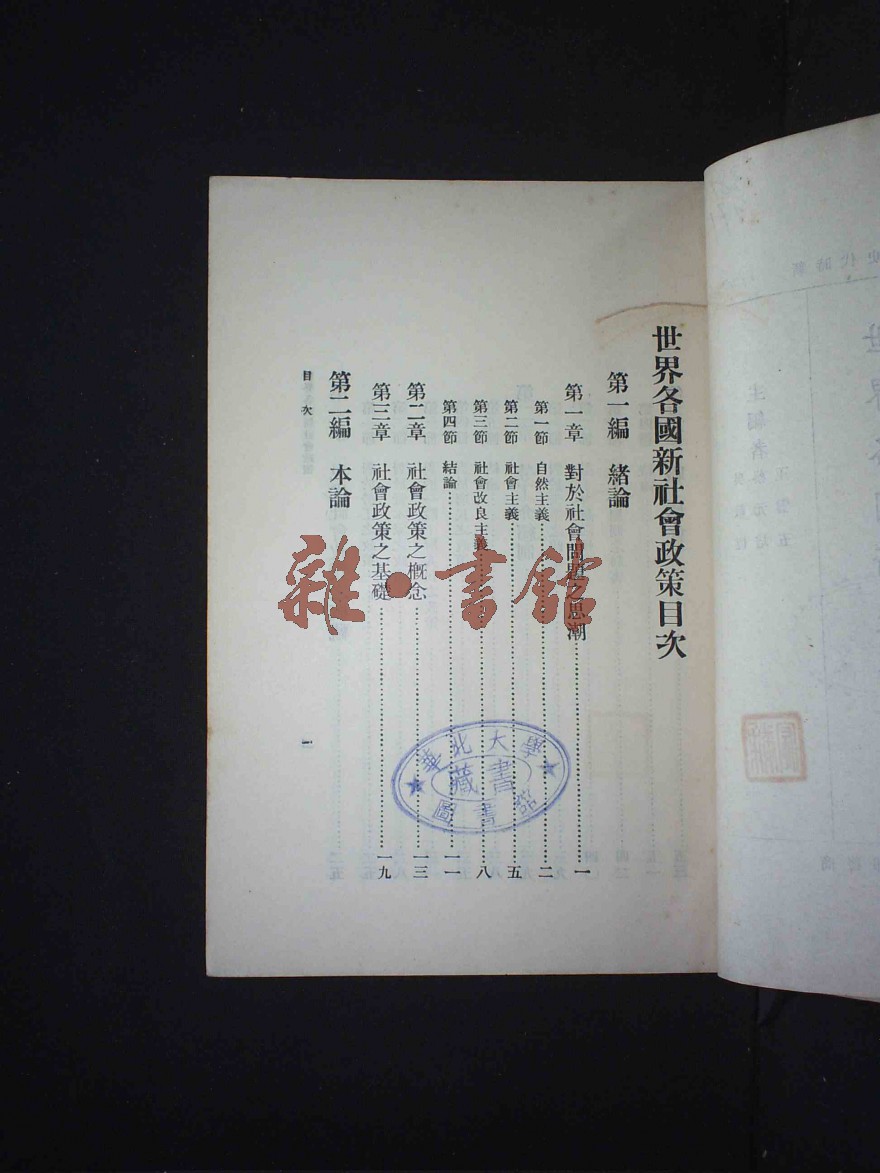 世界各國新社會政策目次
第一編　緒論
第一章　對於社會問題之思潮……一
第一節　自然主義……二
第二節　社會主義……五
第三節　社會改良主義……八
第四節　結論……一一
第二章　社會政策之概念……一三
第三章　社會政策之基礎……一九
第二編　本論
目次
一
華北大學
藏書
圖書館
雜·書館